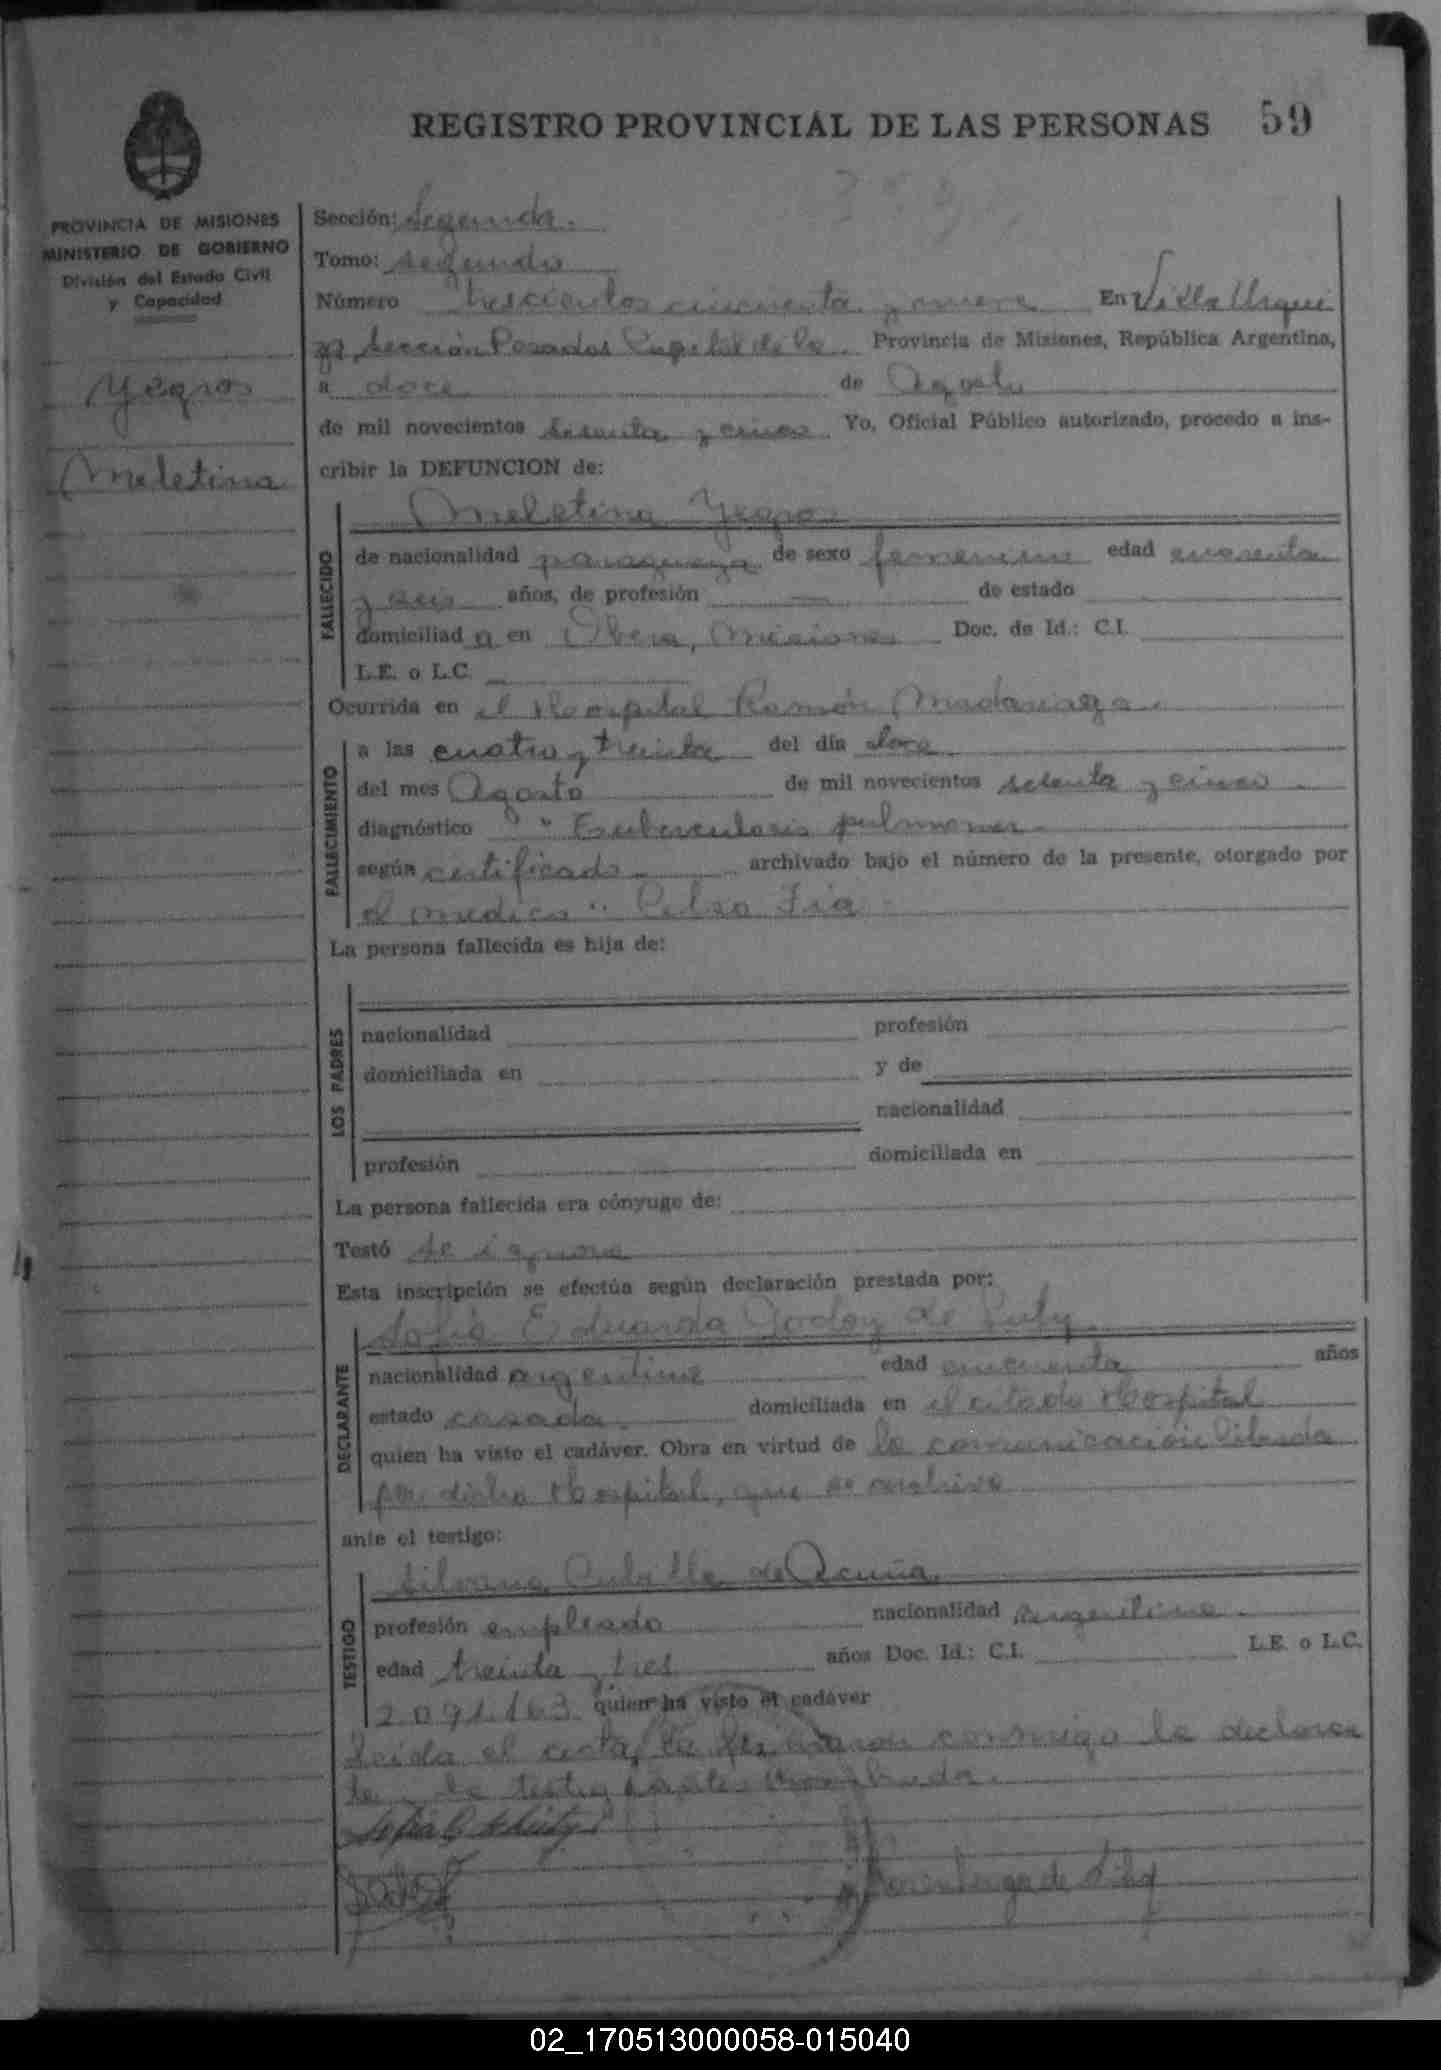 REGISTRO PROVINCIAL DE LAS PERSONAS 59
PROVINCIA DE MISIONES
MINISTERIO DE GOBIERNO
División del Estado Civil
y Capacidad
Yegros
Meletina
Sección: Segunda.
Tomo: segundo
Número Trescientos cincuenta y nueve En Villa Urqui
za, Sección Posadas Capital de la Provincia de Misiones, República Argentina,
a doce de Agosto
de mil novecientos setenta y cinco. Yo, Oficial Público autorizado, procedo a ins-
cribir la DEFUNCION de:
Meletina Yegros
FALLECIDO
de nacionalidad paraguaya de sexo femenino edad cuarenta
y seis años, de profesión — de estado
domiciliad a en Obera, Misiones Doc. de Id.: C.I.
L.E. o L.C.
Ocurrida en el Hospital Ramón Madariaga.
FALLECIMIENTO
a las cuatro y treinta del día doce
del mes Agosto de mil novecientos setenta y cinco.
diagnóstico " Tuberculosis pulmonar
según certificado archivado bajo el número de la presente, otorgado por
el medico Celso
La persona fallecida es hija de:
LOS PADRES
nacionalidad profesión
domiciliada en y de
nacionalidad
profesión domiciliada en
La persona fallecida era cónyuge de:
Testó se ignora
Esta inscripción se efectúa según declaración prestada por:
Sofia Eduarda Godoy de
DECLARANTE
nacionalidad argentina edad cincuenta años
estado casada. domiciliada en el citado Hospital
quien ha visto el cadáver. Obra en virtud de la comunicación librada
por dicho Hospital, que se archiva
ante el testigo:
Silvana Cubilla de Acuña
TESTIGO
profesión empleada nacionalidad argentina.
edad treinta y tres años Doc. Id.: C.I. L.E. o L.C.
2.091.163 quien ha visto el cadáver
Leida el acta, la firmaron conmigo la declaran
te y la testigo antes nombrada.
02_170513000058-015040